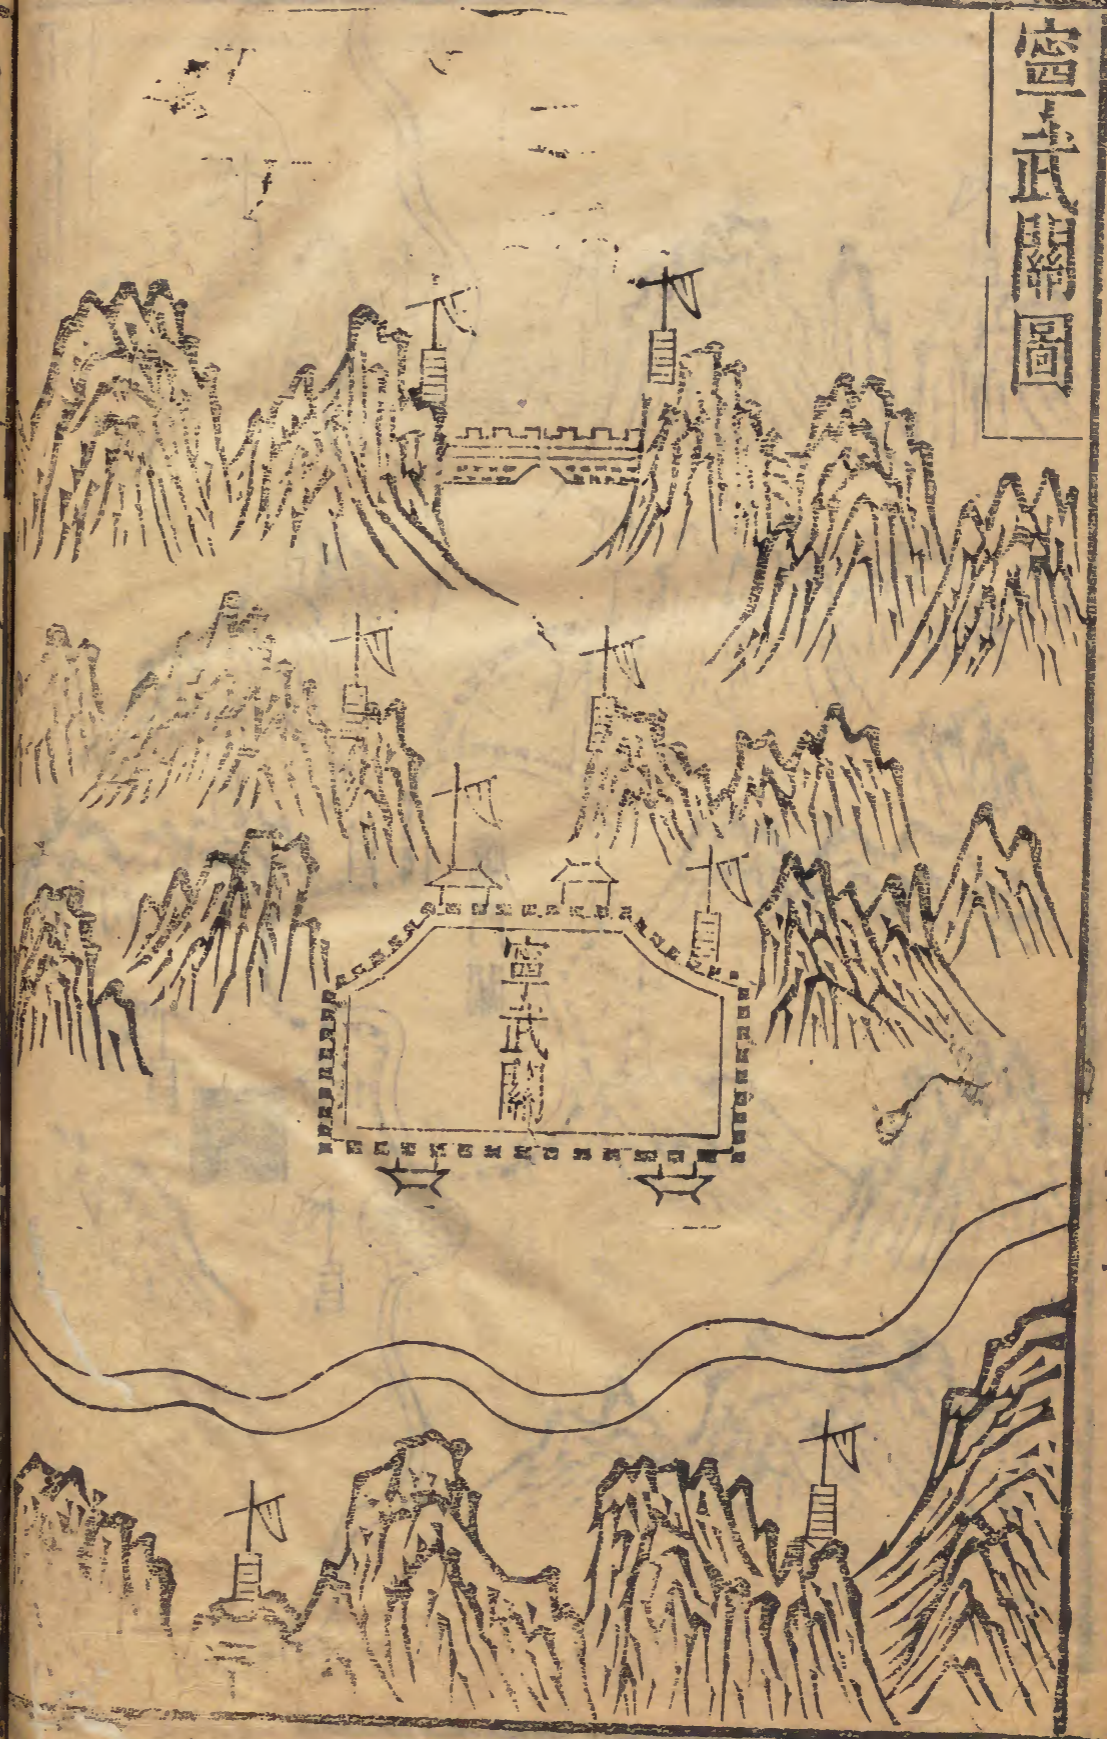 寧武關圖
寧武關